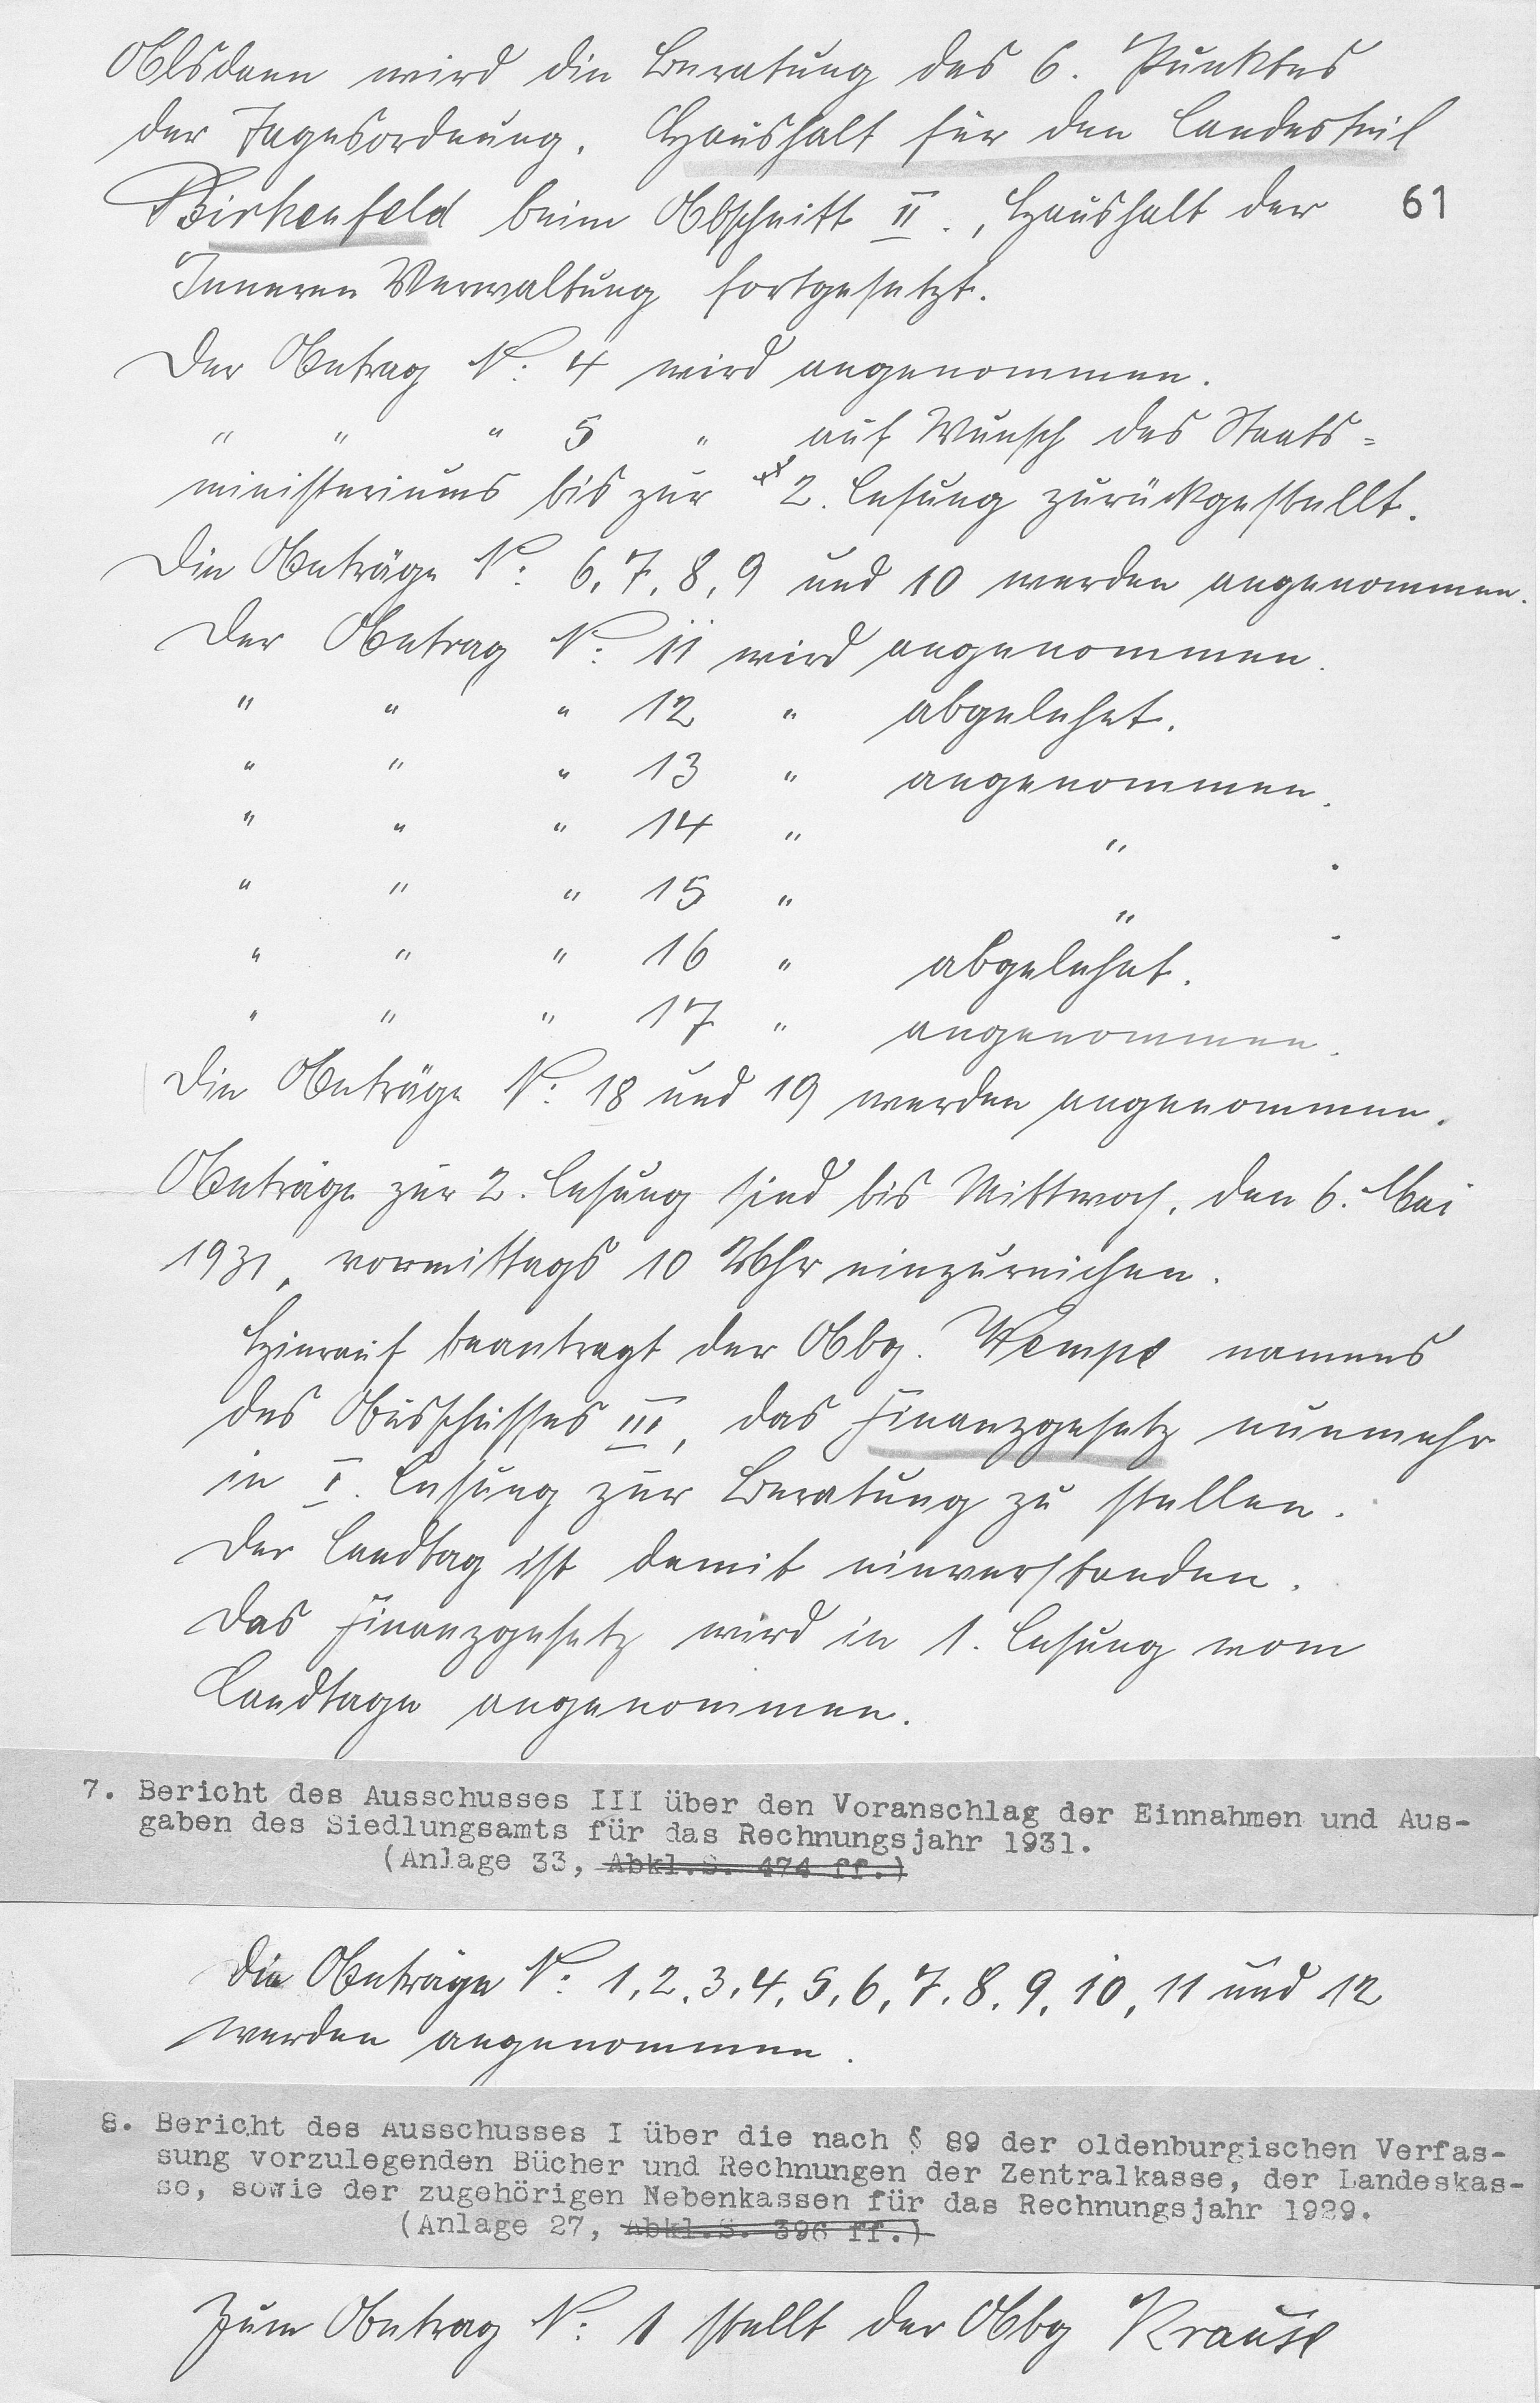 Alsdann wird die Beratung des 6. Punktes
der Tagesordnung. Haushalt für den Landesteil
Birkenfeld beim Abschnitt II., Haushalt der
61
Inneren Verwaltung fortgesetzt.
Der Antrag N: 4 wird angenommen.
" " " 5 " auf Wunsch des Staats=
ministeriums bis zur 2. Lesung zurückgestellt.
Die Anträge N: 6, 7, 8, 9 und 10 werden angenommen.
Der Antrag N: 11 wird angenommen.
" " " 12 " abgelehnt.
" " " 13 " angenommen.
" " " 14 " " .
" " " 15 " " .
" " " 16 " abgelehnt.
" " " 17 " angenommen.
Die Anträge N: 18 und 19 werden angenommen.
Anträge zur 2. Lesung sind bis Mittwoch, den 6. Mai
1931, vormittags 10 Uhr einzureichen.
Hierauf beantragt der Abg. Wempe namens
des Ausschusses III, das Finanzgesetz nunmehr
in I. Lesung zur Beratung zu stellen.
Der Landtag ist damit einverstanden.
Das Finanzgesetz wird in 1. Lesung vom
Landtage angenommen.
7. Bericht des Ausschusses III über den Voranschlag der Einnahmen und Aus-
gaben des Siedlungsamts für das Rechnungsjahr 1931.
(Anlage 33, Abkl.S. 474 ff.)
Die Anträge N: 1, 2, 3, 4, 5, 6, 7, 8, 9, 10, 11 und 12
werden angenommen.
8. Bericht des Ausschusses I über die nach § 89 der oldenburgischen Verfas-
sung vorzulegenden Bücher und Rechnungen der Zentralkasse, der Landeskas-
se, sowie der zugehörigen Nebenkassen für das Rechnungsjahr 1929.
(Anlage 27, Abkl.S. 396 ff.)
Zum Antrag N: 1 stellt der Abg Krause